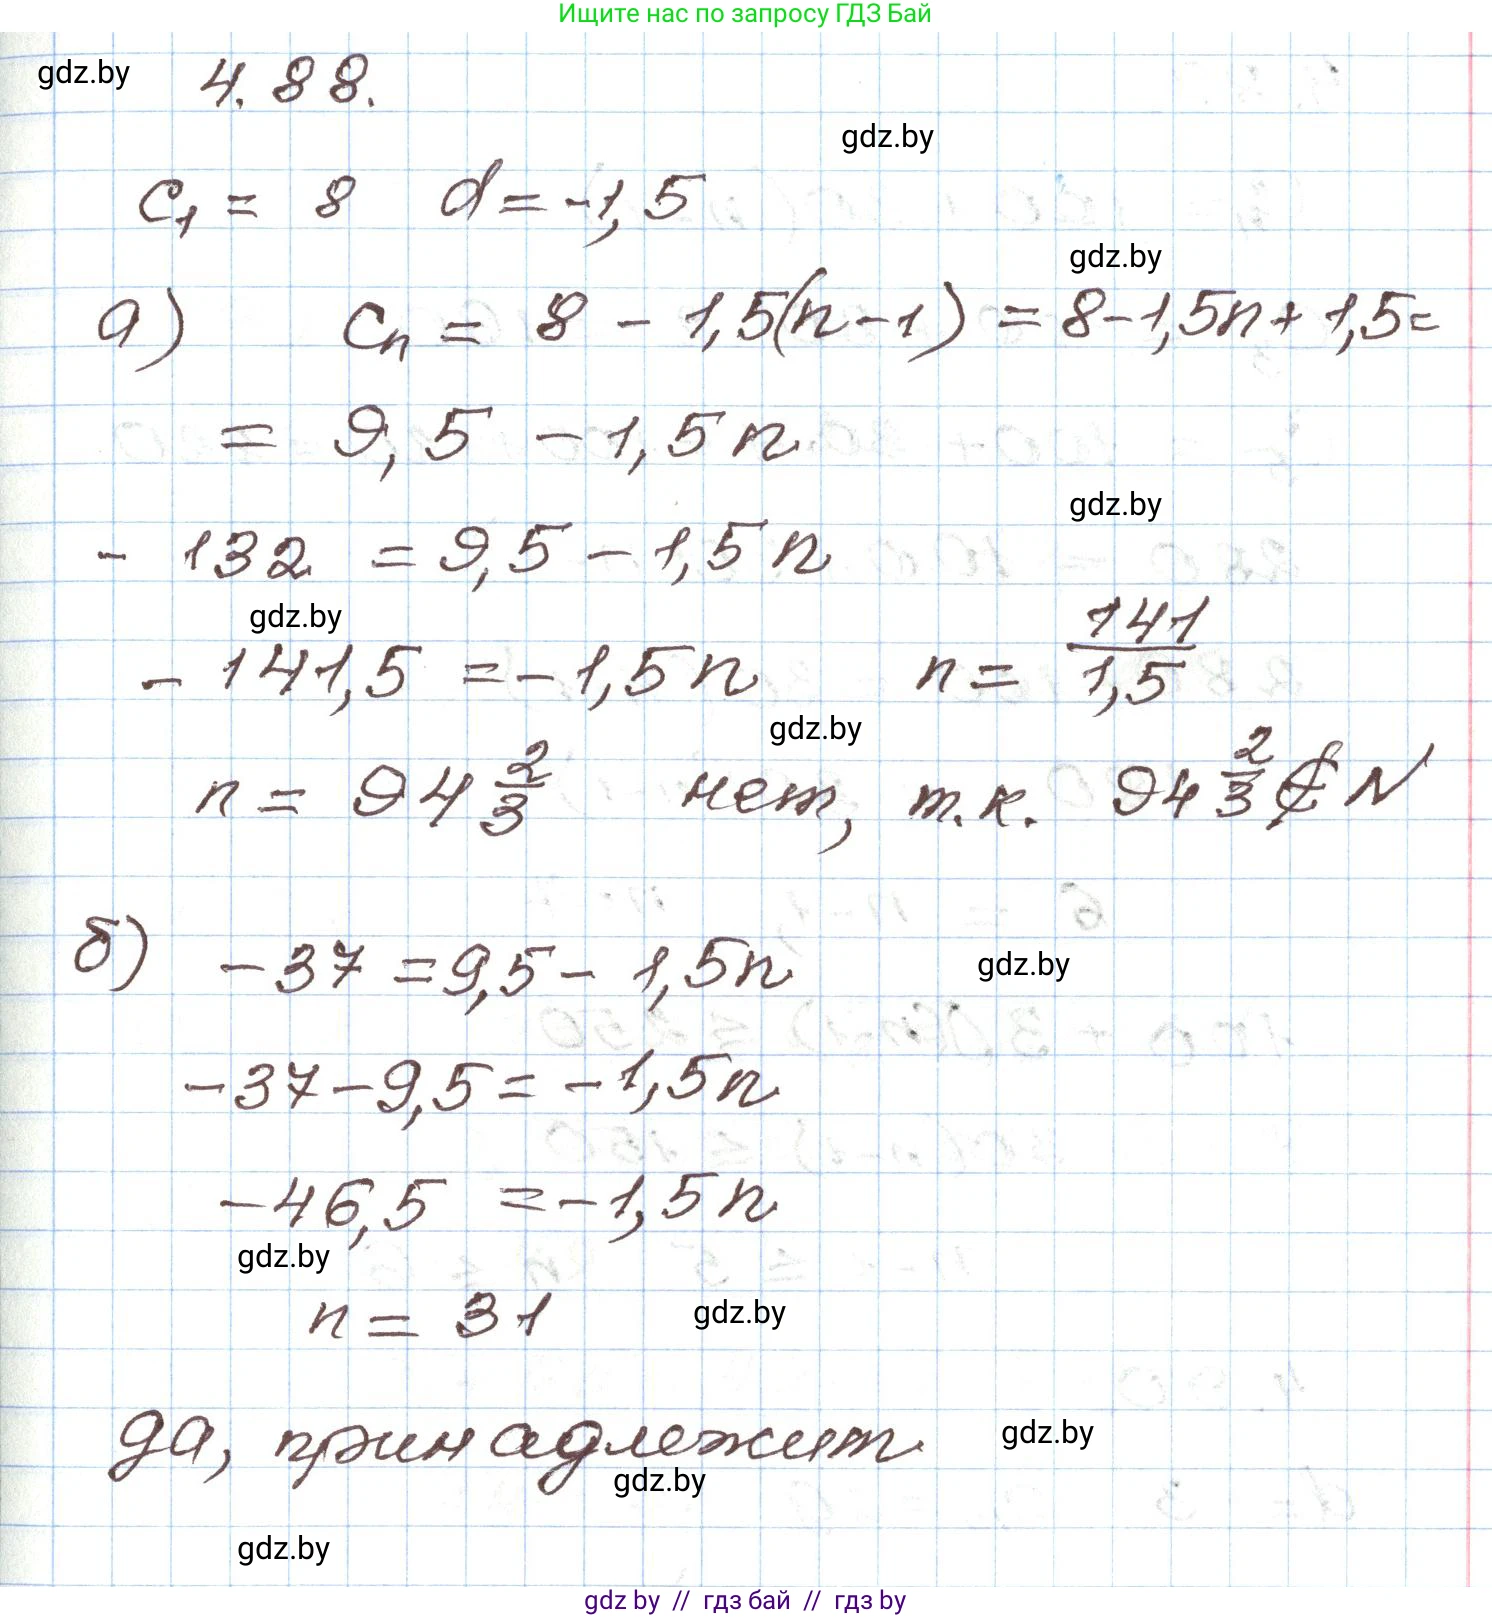 Ищите нас по запросу ГДЗ Бай
gdz.by 4.88.
gdz.by
c₁ = 8 d = -1,5
gdz.by
а) cₙ = 8 - 1,5(n-1) = 8-1,5n + 1,5=
= 9,5 - 1,5n
gdz.by
- 132 = 9,5 - 1,5n
gdz.by
- 141,5 = -1,5n n = 141/1,5
gdz.by
n = 94 2/3 нет, т.к. 94 2/3 ∉ N
б) -37 = 9,5 - 1,5n
gdz.by
-37-9,5 = -1,5n
-46,5 = -1,5n
gdz.by
n = 31
gdz.by
да, принадлежит
gdz.by
gdz.by
gdz.by
gdz by // гдз бай // гдз by